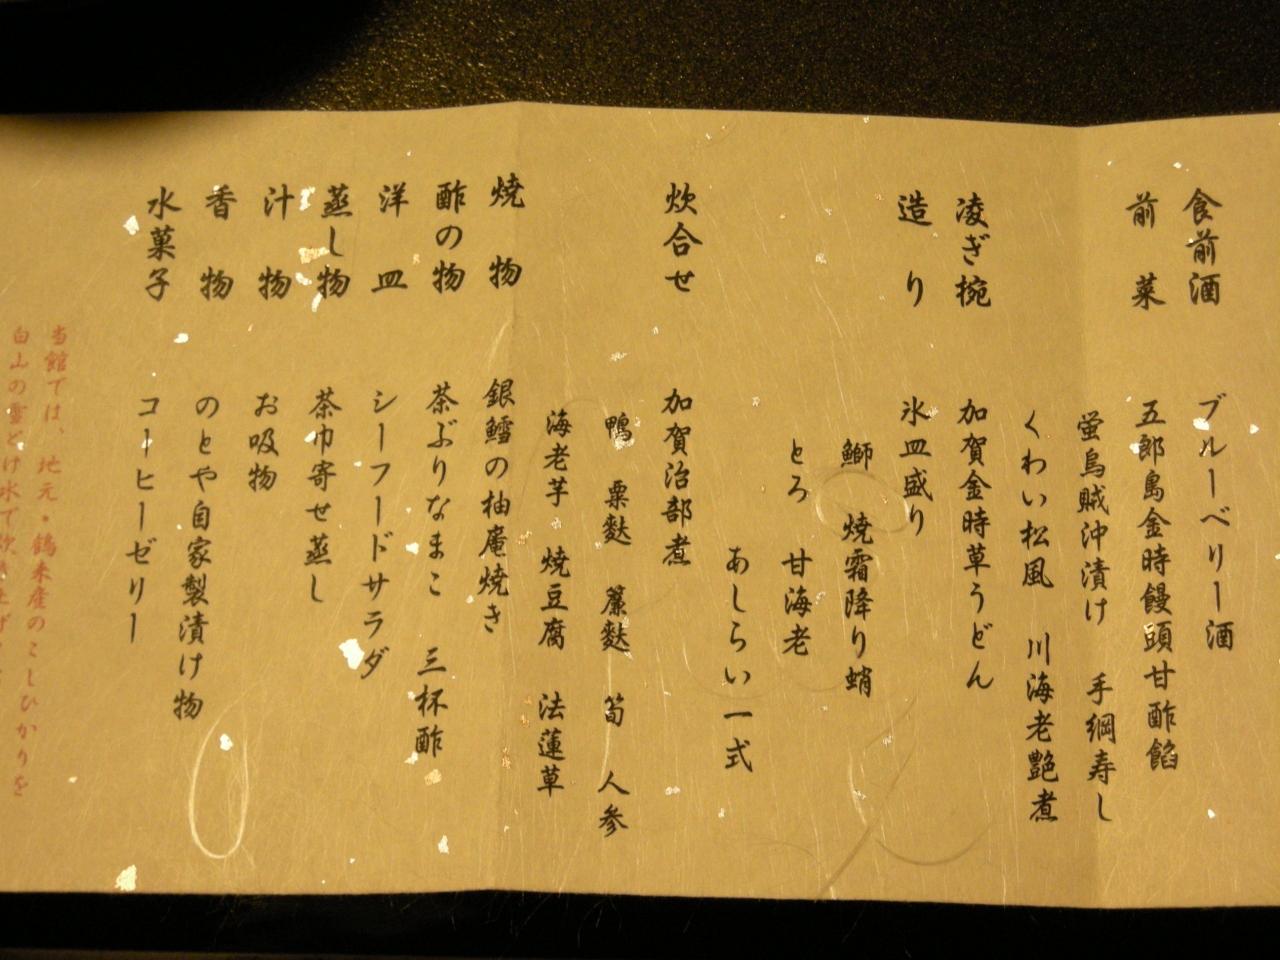 食前酒 ブルーベリー酒
前菜 五郎島金時饅頭甘酢餡
蛍烏賊沖漬け 手綱寿し
くわい松風 川海老艶煮
凌ぎ椀 加賀金時草うどん
造り 氷皿盛り
鰤 焼霜降り蛸
とろ 甘海老
あしらい一式
炊合せ 加賀治部煮
鴨 粟麩 簾麩 筍 人参
海老芋 焼豆腐 法蓮草
焼物 銀鱈の柚庵焼き
酢の物 茶ぶりなまこ 三杯酢
洋皿 シーフードサラダ
蒸し物 茶巾寄せ蒸し
汁物 お吸物
香物 のとや自家製漬け物
水菓子 コーヒーゼリー
当館では、地元・鶴来産のこしひかりを
白山の雪どけ水で炊き上げ